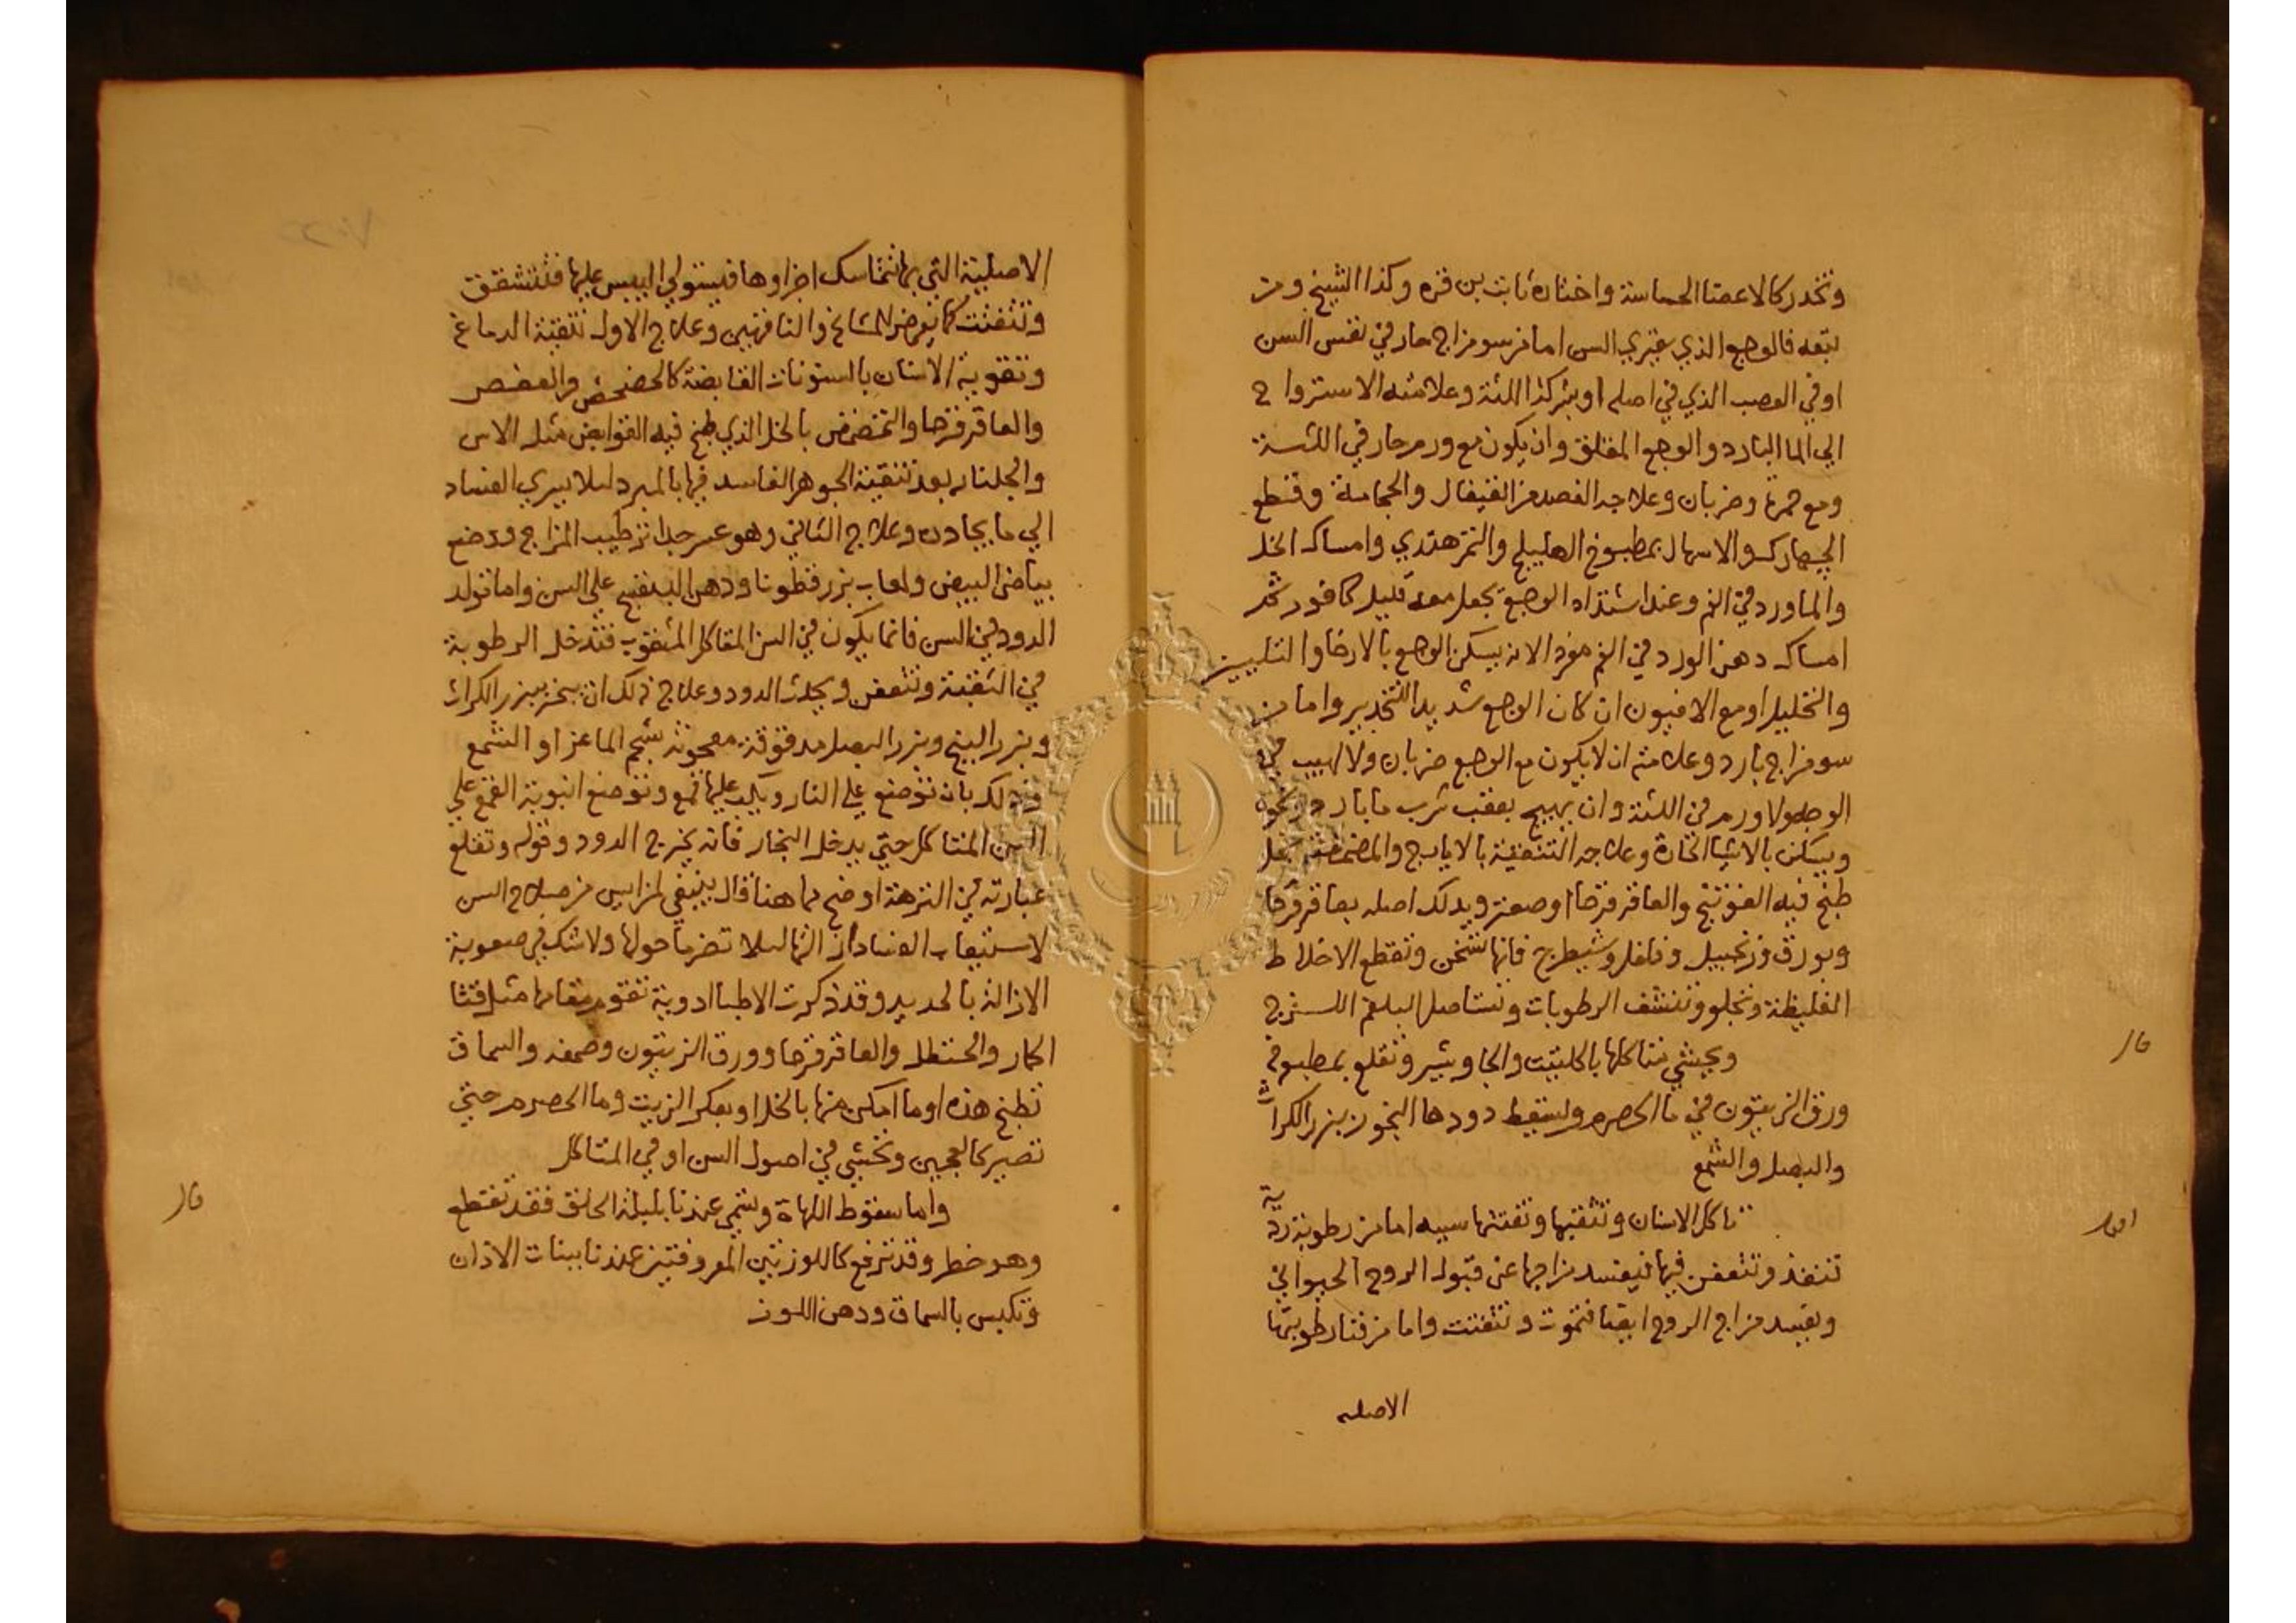 وتخدر كالاعضا الحساسة واختاره ثابت بن قره وكذا الشيخ ومن
تبعه فالوجع الذي يعتري السن اما من سو مزاج حار في نفس السن
او في العصب الذي في اصله او بشركة اللثة وعلامته الاسترواح
الي الما البارد والوجع المقلق وان يكون مع ورم حار في اللثة
ومع حمرة وضربان وعلاجه الفصد من القيفال والحجامة وقطع
الجهارك والاسهال بمطبوخ الهليلج والتمر هندي وامساك الخل
والماورد في الفم وعند اشتداد الوجع يجعل معه قليل كافور ثم
امساك دهن الورد في الفم لانه يسكن الوجع بالارخا والتليين
والتحليل او مع الافيون ان كان الوجع شديد التخدير واما من
سو مزاج بارد وعلامته ان لا يكون مع الوجع ضربان ولا لهيب في
الوجه ولا ورم في اللثة وان يهيج بعقب شرب ما بارد ونحوه
ويسكن بالاشيا الحارة وعلاجه التنقية بالايارج والمضمضة بخل
طبخ فيه الفوتنج والعاقر قرحا او صعتر ويدلك اصله بعاقر قرحا
وبورق وزنجبيل وفلفل وشيطرج فانها تسخن وتقطع الاخلاط
الغليظة وتجلو وتنشف الرطوبات وتستاصل البلغم اللزج
قال
ويحشي متاكلها بالحلتيت والجاوشير وتقلع بمطبوخ
ورق الزيتون في ما الحصرم ويسقط دودها البخور ببزر الكراث
والبصل والشمع
اقول
تاكل الاسنان وتثقبها وتفتتها سببه اما من رطوبة ردية
تنفذ وتتعفن فيها فيفسد مزاجها عن قبول الروح الحيواني
ويفسد مزاج الروح ايضا فتموت وتتفتت واما من فنا رطوبتها
الاصليه
الاصلية التي بها تتماسك اجزاوها فيستولي اليبس عليها فتتشقق
وتتفتت كما يعرض للمشايخ والناقهين وعلاج الاول تنقية الدماغ
وتقوية الاسنان بالسنونات القابضة كالحضحض والعفص
والعاقر قرحا والتمضمض بالخل الذي طبخ فيه القوابض مثل الاس
والجلنار بعد تنقية الجوهر الفاسد فيها بالمبرد ليلا يسري الفساد
الي ما يجاوره وعلاج الثاني وهو عسر جدا ترطيب المزاج ووضع
بياض البيض ولعاب بزر قطونا ودهن البنفسج علي السن واما تولد
الدود في السن فانما يكون في السن المتاكل المثقوب فتدخل الرطوبة
في الثقبة وتتعفن ويحدث الدود وعلاج ذلك ان يبخر ببزر الكراث
وبزر البنج وبزر البصل مدقوقة معجونة بشحم الماعز او الشمع
وذلك بان توضع علي النار ويكب عليها قمع وتوضع انبوبة القمع علي
السن المتاكل حتي يدخل البخار فانه يخرج الدود وقوله وتقلع
عبارته في النزهة اوضح مما هنا قال ينبغي لمن ايس من صلاح السن
لاستيعاب الفساد ازالتها ليلا تضر ما حولها ولا شك في صعوبة
الازالة بالحديد وقد ذكرت الاطبا ادوية تقوم مقامها مثل قثا
الحمار والحنظل والعاقر قرحا وورق الزيتون وصمغه والسماق
تطبخ هذه او ما امكن منها بالخل او بعكر الزيت وما الحصرم حتي
تصير كالعجين وتحشي في اصول السن او في المتاكل
قال
واما سقوط اللهاة وتسمي عندنا بلبلة الحلق فقد تقطع
وهو خطر وقد ترفع كاللوزتين المعروفتين عندنا ببنات الاذان
وتكبس بالسماق ودهن اللوز